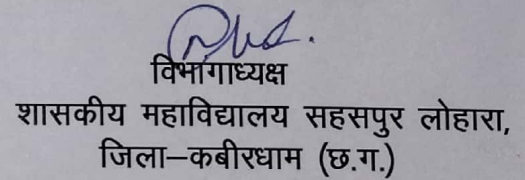 विभागाध्यक्ष
शासकीय महाविद्यालय सहसपुर लोहारा,
जिला–कबीरधाम (छ.ग.)